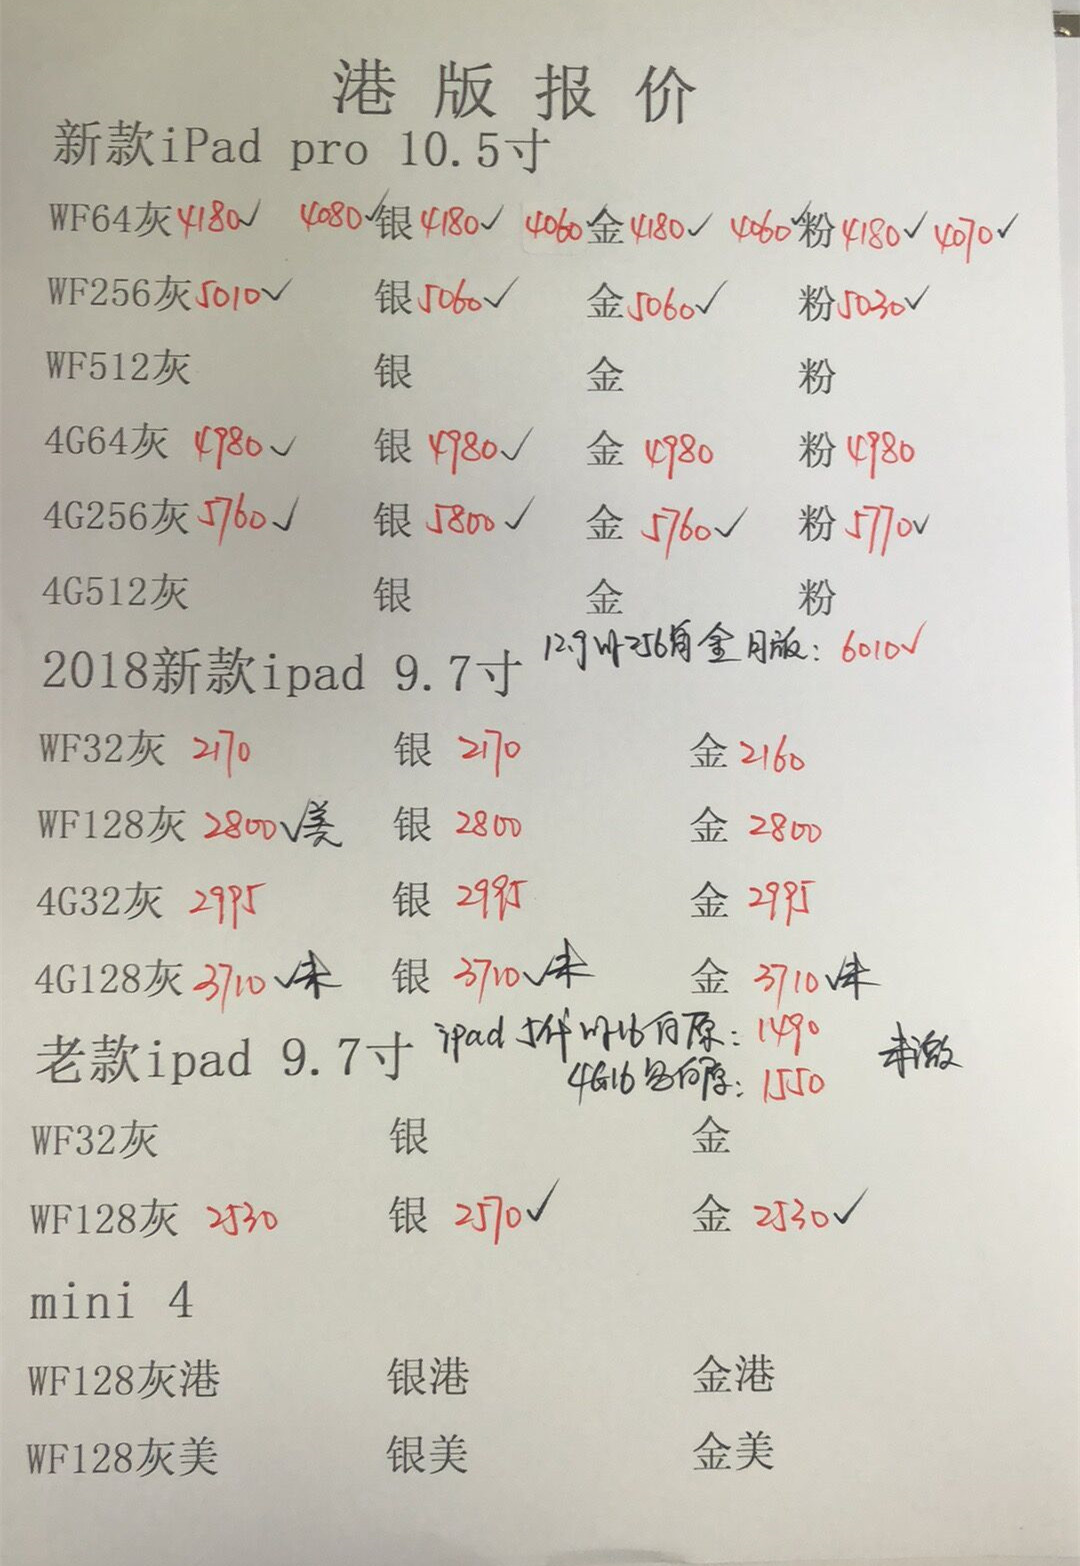 港版报价
新款iPad pro 10.5寸
WF64灰4180✓ 4080✓银4180✓ 4060✓金4180✓ 4060✓粉4180✓ 4070✓
WF256灰5010✓ 银5060✓ 金5060✓ 粉5030✓
WF512灰 银 金 粉
4G64灰 4980✓ 银 4980✓ 金 4980 粉 4980
4G256灰 5760✓ 银 5800✓ 金 5760✓ 粉 5770✓
4G512灰 银 金 粉
12.9 256 金 版: 6010✓
2018新款ipad 9.7寸
WF32灰 2170 银 2170 金 2160
WF128灰 2800✓美 银 2800 金 2800
4G32灰 2995 银 2995 金 2995
4G128灰 3710✓未 银 3710✓未 金 3710✓未
老款ipad 9.7寸 ipad 5代 16 白原: 1490 未激
4G16 白原: 1550
WF32灰 银 金
WF128灰 2530 银 2570✓ 金 2530✓
mini 4
WF128灰港 银港 金港
WF128灰美 银美 金美